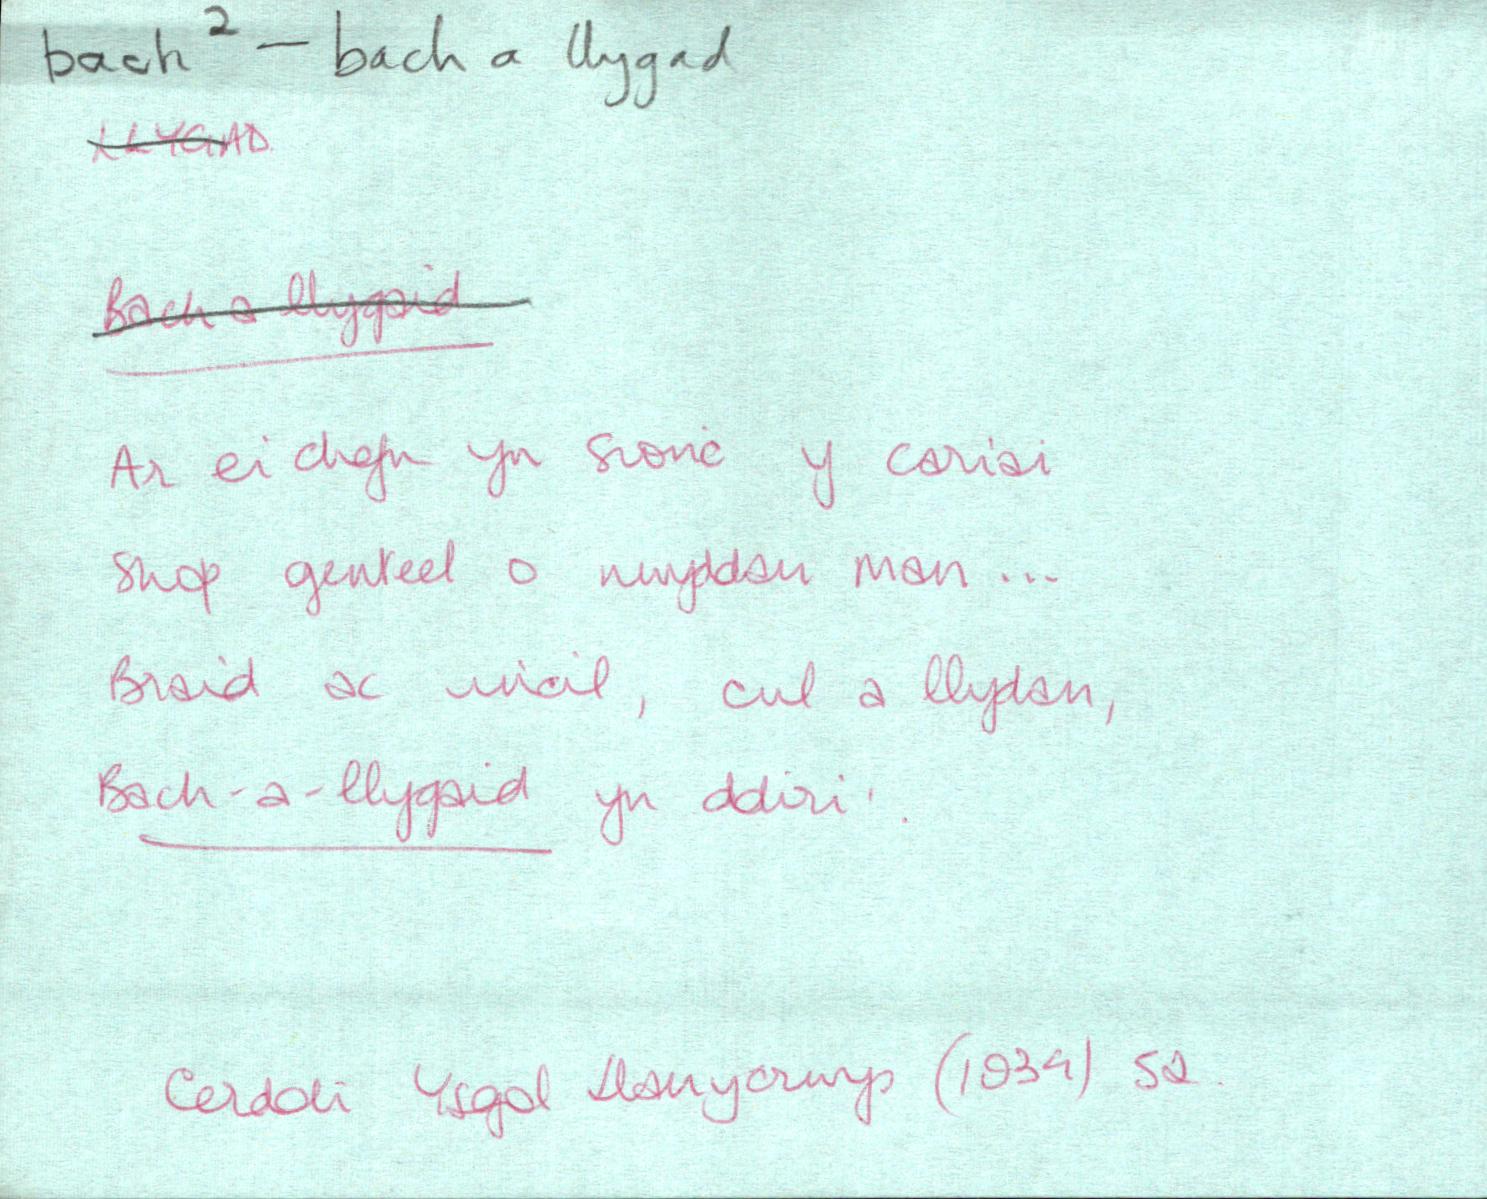 bach² – bach a llygad
LLYGAD
Bach a llygaid
Ar ei chefn yn sionc y cariai
Shop genteel o nwyddau man ...
Braid ac incil, cul a llydan,
Bach-a-llygaid yn ddiri!
Cerddi Ysgol Llanycrwys (1934) 52.